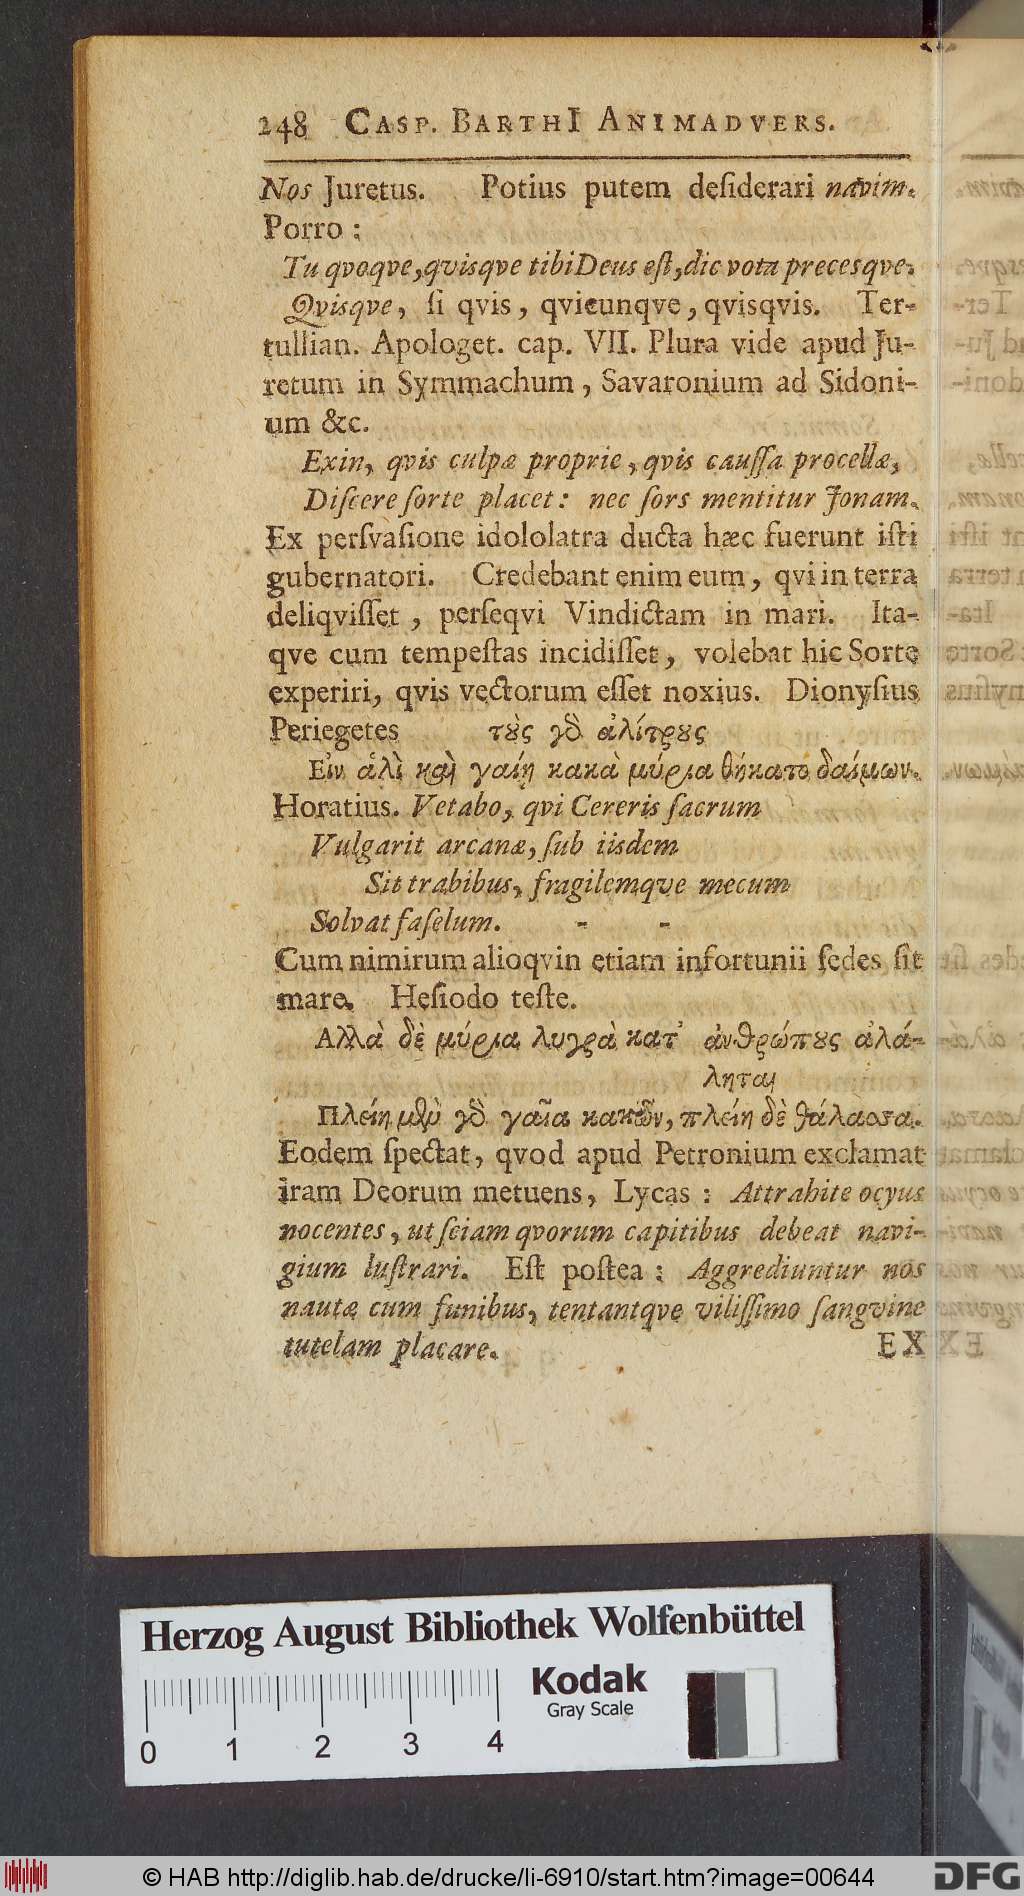 248 CASP. BARTHI ANIMADVERS.
Nos Juretus. Potius putem deſiderari navim.
Porro :
Tu qvoqve, qvisqve tibi Deus eſt, dic vota precesqve.
Qvisqve, ſi qvis, qvicunqve, qvisqvis. Ter-
tullian. Apologet. cap. VII. Plura vide apud Ju-
retum in Symmachum, Savaronium ad Sidoni-
um &c.
Exin, qvis culpæ proprie, qvis cauſſa procellæ,
Diſcere ſorte placet: nec ſors mentitur Jonam.
Ex perſvaſione idololatra ducta hæc fuerunt iſti
gubernatori. Credebant enim eum, qvi in terra
deliqviſſet, perſeqvi Vindictam in mari. Ita-
qve cum tempeſtas incidiſſet, volebat hic Sorte
experiri, qvis vectorum eſſet noxius. Dionyſius
Periegetes τȣ̀ς γὸ ἀλίτρȣς
Εἰν ἁλὶ καὶ γαίη κακὰ μύρια θήκατο δαίμων.
Horatius. Vetabo, qvi Cereris ſacrum
Vulgarit arcanæ, ſub iisdem
Sit trabibus, fragilemqve mecum
Solvat faſelum. - -
Cum nimirum alioqvin etiam infortunii ſedes ſit
mare. Heſiodo teſte.
Αλλὰ δὲ μύρια λυγρὰ κατ' ἀνθρώπȣς ἀλά-
ληται
Πλείη μὲν γὸ γαῖα κακῶν, πλείη δὲ θάλαοσα.
Eodem ſpectat, qvod apud Petronium exclamat
iram Deorum metuens, Lycas : Attrahite ocyus
nocentes, ut ſciam qvorum capitibus debeat navi-
gium luſtrari. Eſt poſtea : Aggrediuntur nos
nautæ cum funibus, tentantqve viliſſimo ſangvine
tutelam placare.
EX
Herzog August Bibliothek Wolfenbüttel
Kodak
Gray Scale
0 1 2 3 4
© HAB http://diglib.hab.de/drucke/li-6910/start.htm?image=00644
DFG